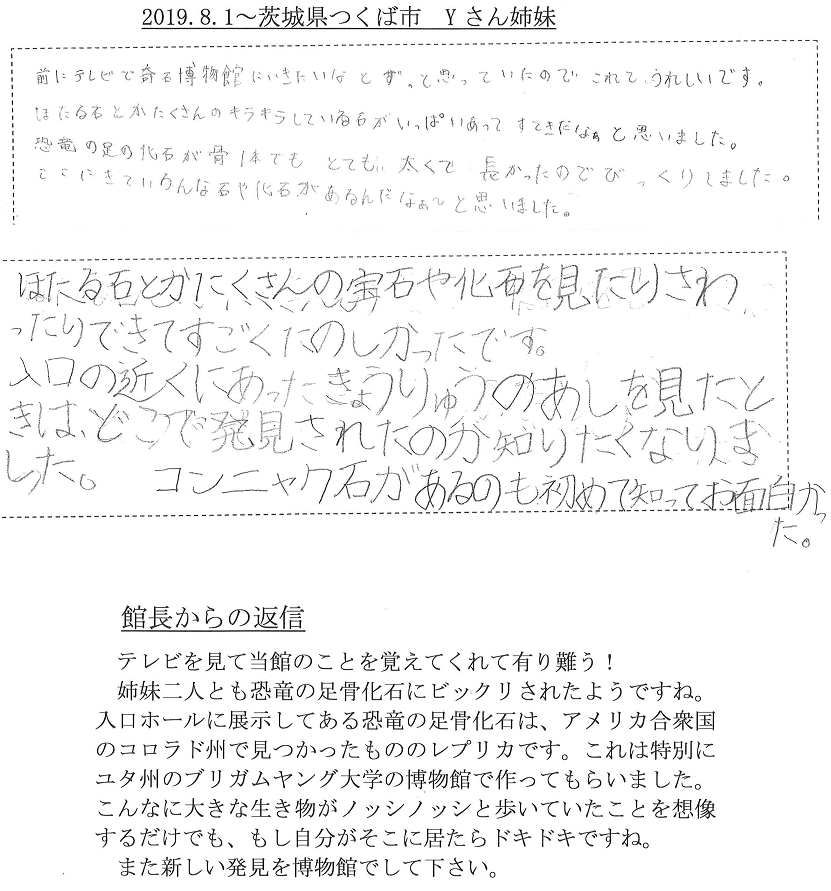 2019.8.1～茨城県つくば市　Yさん姉妹
前にテレビで奇石博物館にいきたいなとずっと思っていたので これて、うれしいです。
ほたる石とかたくさんのキラキラしている石がいっぱいあって すてきだなぁと思いました。
恐竜の足の化石が骨1本でも とても、太くて 長かったのでびっくりしました。
ここにきていろんな石や化石があるんだなぁ～と思いました。
ほたる石とかたくさんの宝石や化石を見たりさわ
ったりできてすごくたのしかったです。
入口の近くにあったきょうりゅうのあしを見たと
きは、どこで発見されたのか知りたくなりま
した。　コンニャク石があるのも初めて知ってお面白かっ
た。
館長からの返信
テレビを見て当館のことを覚えてくれて有り難う！
姉妹二人とも恐竜の足骨化石にビックリされたようですね。
入口ホールに展示してある恐竜の足骨化石は、アメリカ合衆国
のコロラド州で見つかったもののレプリカです。これは特別に
ユタ州のブリガムヤング大学の博物館で作ってもらいました。
こんなに大きな生き物がノッシノッシと歩いていたことを想像
するだけでも、もし自分がそこに居たらドキドキですね。
また新しい発見を博物館でして下さい。